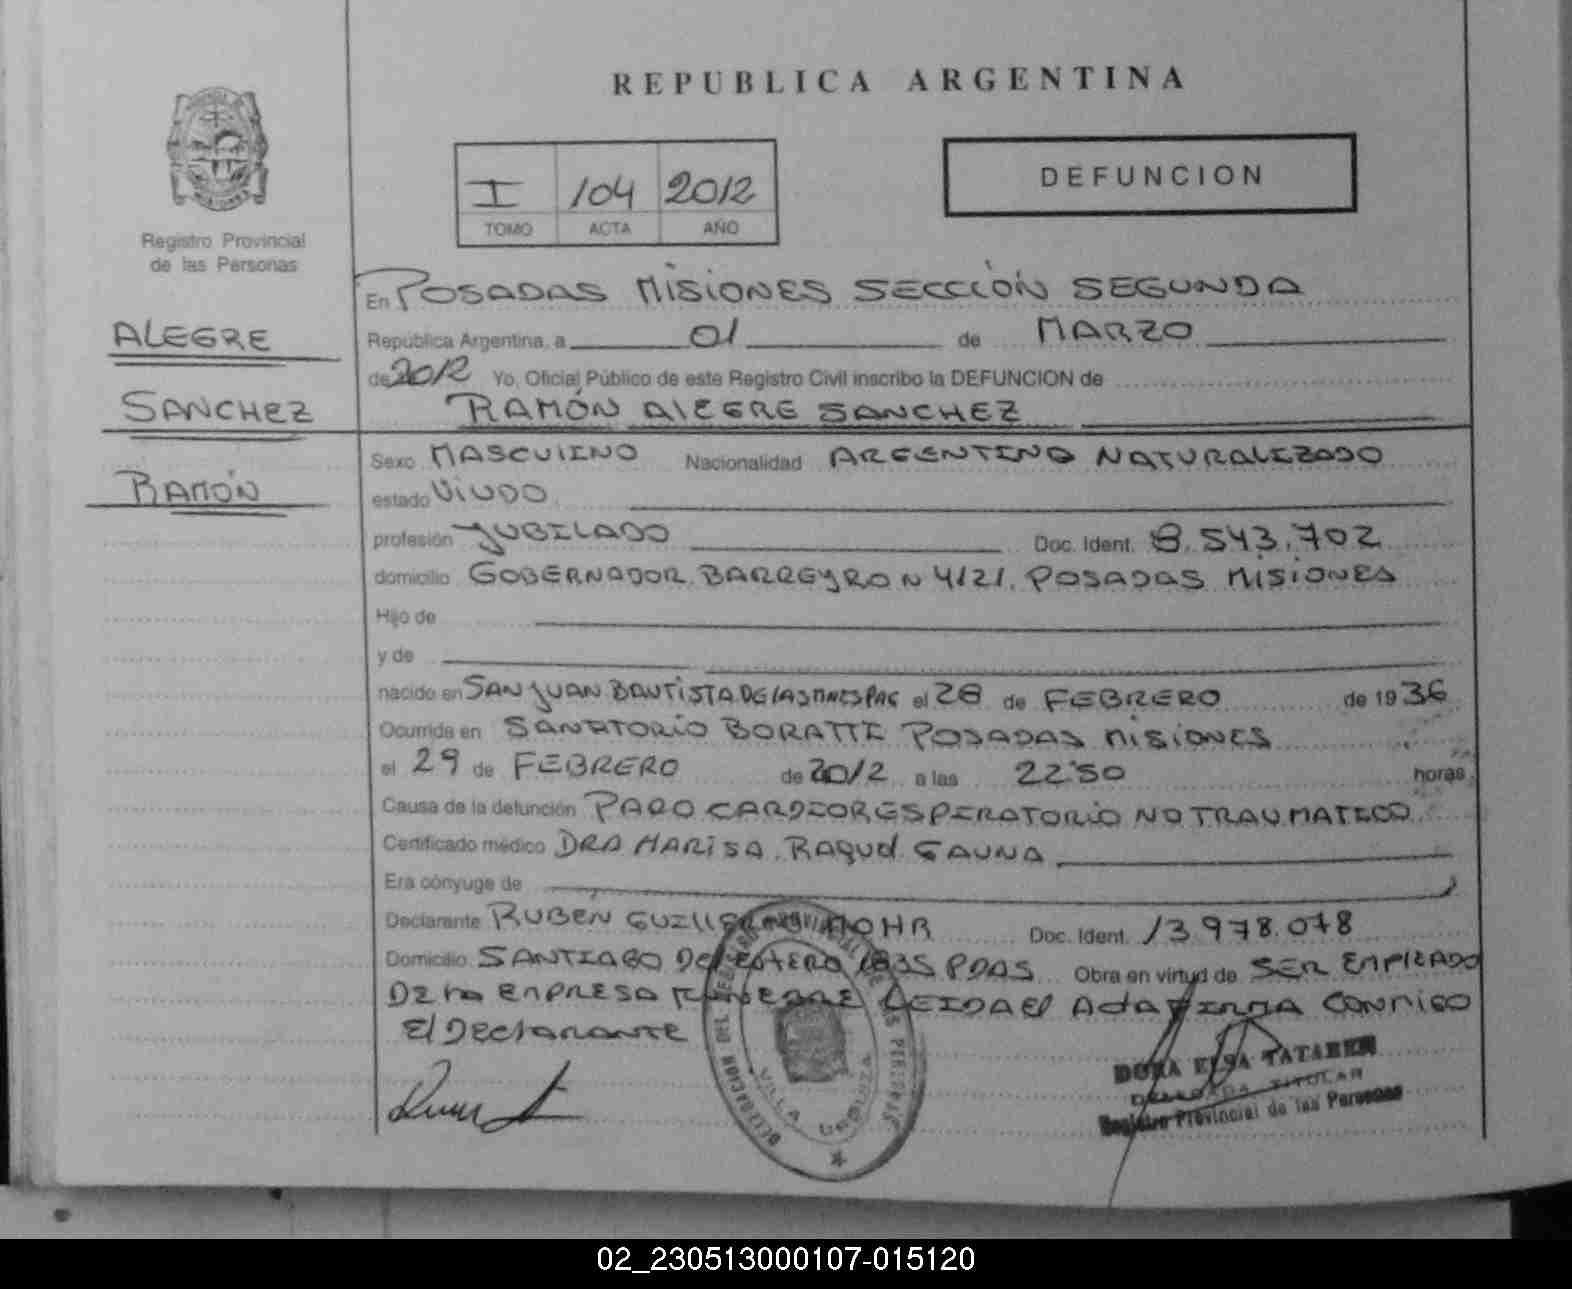 REPUBLICA ARGENTINA
I 104 2012
TOMO ACTA AÑO
DEFUNCION
Registro Provincial
de las Personas
ALEGRE
SANCHEZ
RAMÓN
En POSADAS MISIONES SECCIÓN SEGUNDA
República Argentina, a 01 de MARZO
de 2012 Yo, Oficial Público de este Registro Civil inscribo la DEFUNCION de
RAMÓN ALEGRE SANCHEZ
Sexo MASCULINO Nacionalidad ARGENTINO NATURALIZADO
estado VIUDO
profesión JUBILADO Doc. Ident. 8.543.702
domicilio GOBERNADOR BARREYRO N 4121. POSADAS MISIONES
Hijo de
y de
nacido en SAN JUAN BAUTISTA DE LAS el 28 de FEBRERO de 1936
Ocurrida en SANATORIO BORATTI POSADAS MISIONES
el 29 de FEBRERO de 2012 a las 22:50 horas
Causa de la defunción PARO CARDIORESPIRATORIO NO TRAUMATICO
Certificado médico DRA MARISA RAQUEL GAUNA
Era cónyuge de
Declarante RUBEN Doc. Ident. 13.978.078
Domicilio SANTIAGO DEL ESTERO 1835 PDAS Obra en virtud de SER EMPLEADO
DE LA EMPRESA FUNEBRE LEIDA El Acta FIRMA CONMIGO
El Declarante
DELEGACION DEL REGISTRO PROVINCIAL DE LAS PERSONAS
VILLA URQUIZA
DORA ELSA TATAREN
DELEGADA TITULAR
Registro Provincial de las Personas
02_230513000107-015120